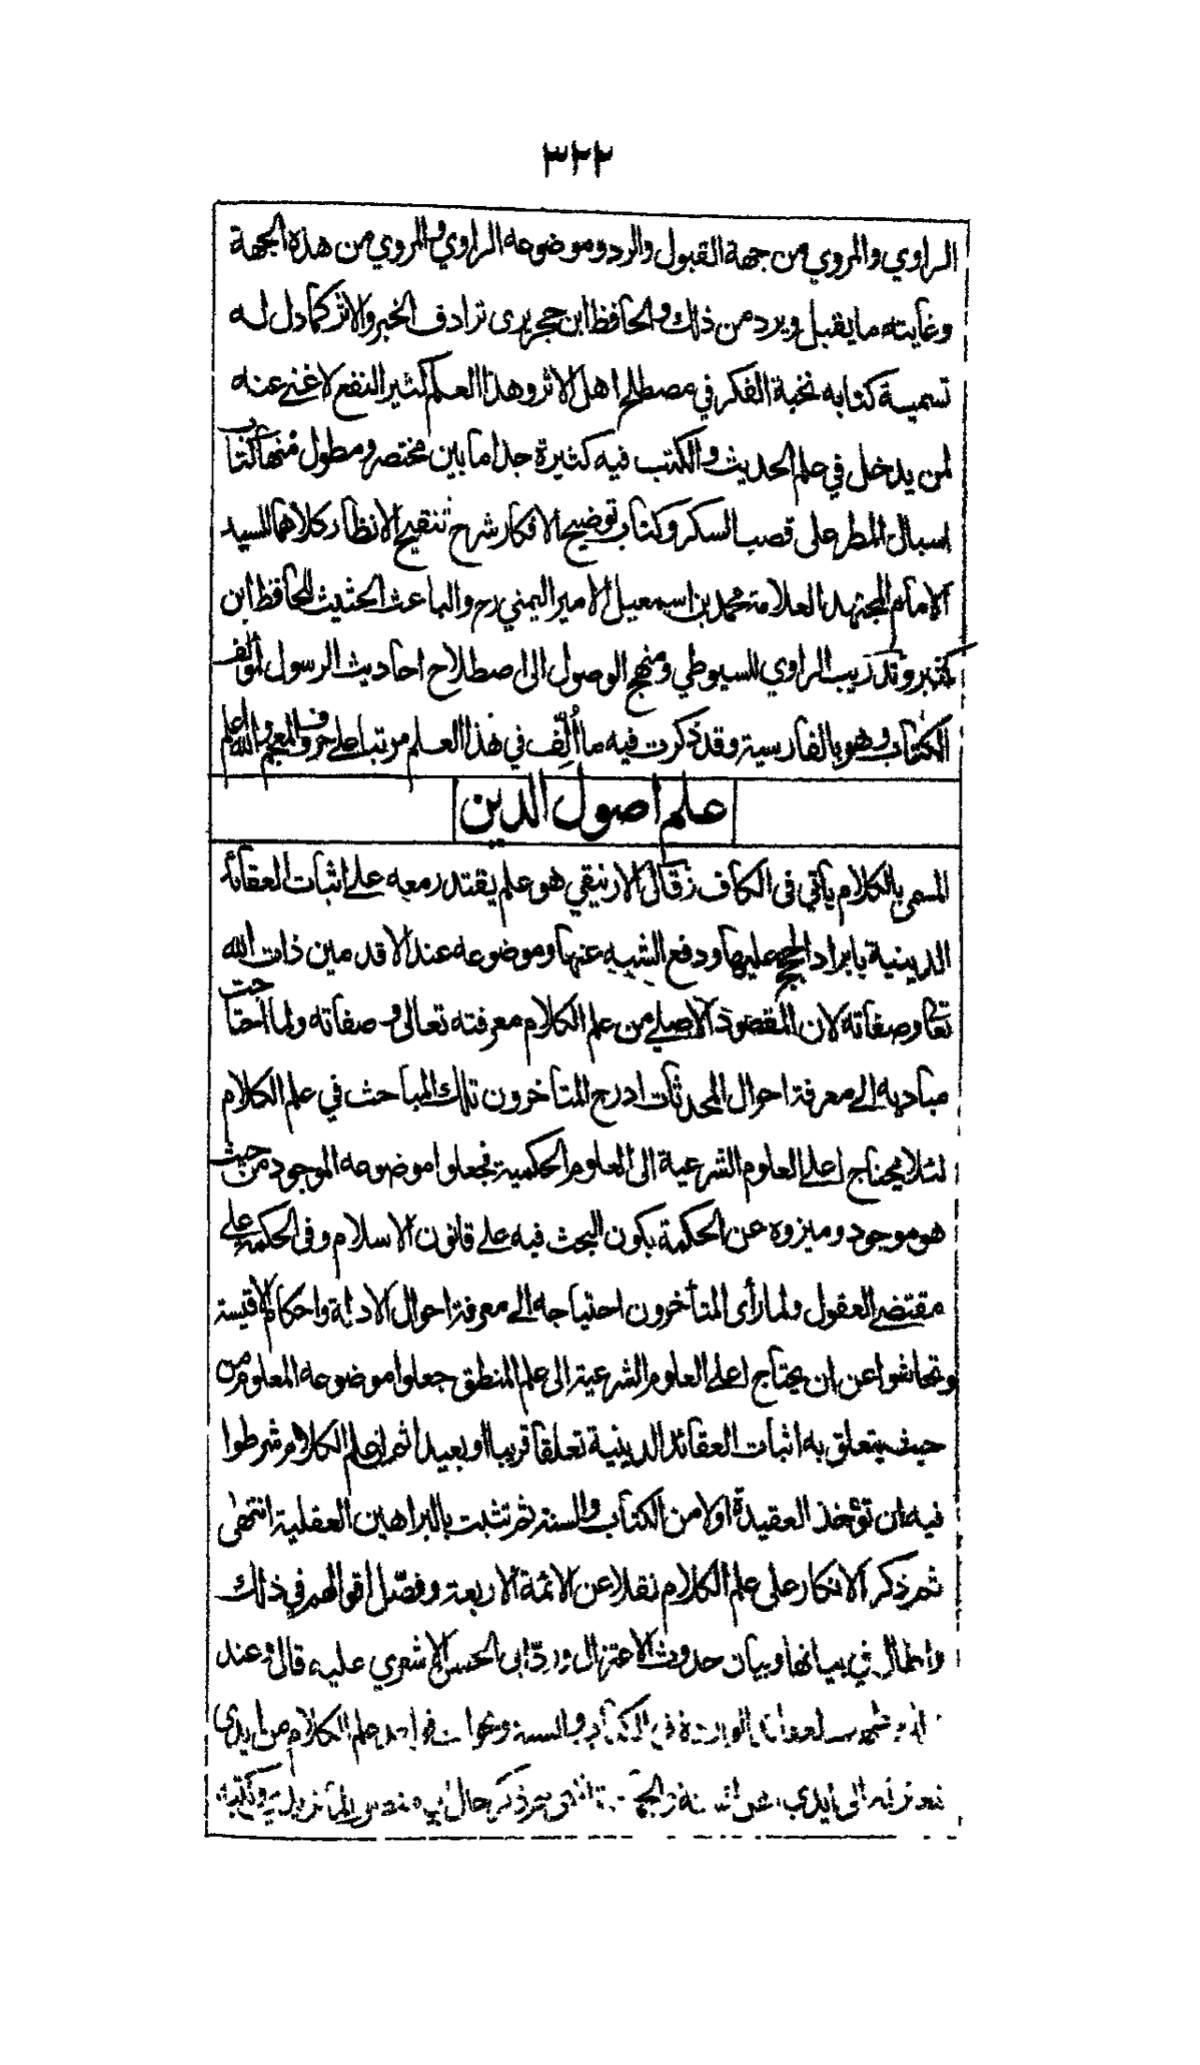 ٣٢٢
الراوي والمروي من جهة القبول والرد وموضوعه الراوي والمروي من هذه الجهة
وغايته ما يقبل ويرد من ذلك والحافظ ابن حجر يرى ترادف الخبر والاثر كما دل له
تسمية كتابه نخبة الفكر في مصطلح اهل الاثر وهذا العلم كثير النفع لا غنى عنه
لمن يدخل في علم الحديث والكتب فيه كثيرة جدا ما بين مختصر ومطول منها كتاب
اسبال المطر على قصب السكر وكتاب توضيح الافكار شرح تنقيح الانظار كلاهما للسيد
الامام المجتهد العلامة محمد بن اسمعيل الامير اليمني رح والباعث الحثيث للحافظ ابن
كثير وتدريب الراوي للسيوطي ومنهج الوصول الى اصطلاح احاديث الرسول لمؤلف
الكتاب وهو بالفارسية وقد ذكرت فيه ما ألّف في هذا العلم مرتبا على حروف المعجم والله اعلم
علم اصول الدين
المسمى بالكلام يأتي فى الكاف قال الارنيقي هو علم يقتدر معه على اثبات العقائد
الدينية بايراد الحجج عليها ودفع الشبه عنها وموضوعه عند الاقدمين ذات الله
تعا وصفاته لان المقصود الاصلي من علم الكلام معرفته تعالى و صفاته ولما احتاجت
مباديه الى معرفة احوال المحدثات ادرج المتأخرون تلك المباحث في علم الكلام
لئلا يحتاج اعلى العلوم الشرعية الى العلوم الحكمية فجعلوا موضوعه الموجود من حيث
هو موجود وميزوه عن الحكمة بكون البحث فيه على قانون الاسلام وفى الحكمة على
مقتضى العقول ولما رأى المتأخرون احتياجه الى معرفة احوال الادلة واحكام الاقيسة
وتحاشوا عن ان يحتاج اعلى العلوم الشرعية الى علم المنطق جعلوا موضوعه المعلوم من
حيث يتعلق به اثبات العقائد الدينية تعلقا قريبا او بعيدا ثم ان علم الكلام شرطوا
فيه ان تؤخذ العقيدة اولا من الكتاب والسنة ثم تثبت بالبراهين العقلية انتهى
ثم ذكر الانكار على علم الكلام نقلا عن الائمة الاربعة وفصّل اقوالهم في ذلك
واطال في بيانها وبيان حدوث الاعتزال وردّ ابى الحسن الاشعري عليه قال وعند
الواردة في الكتاب والسنة علم الكلام من ايدي
الى ايدي انتهى ثم ذكر حال